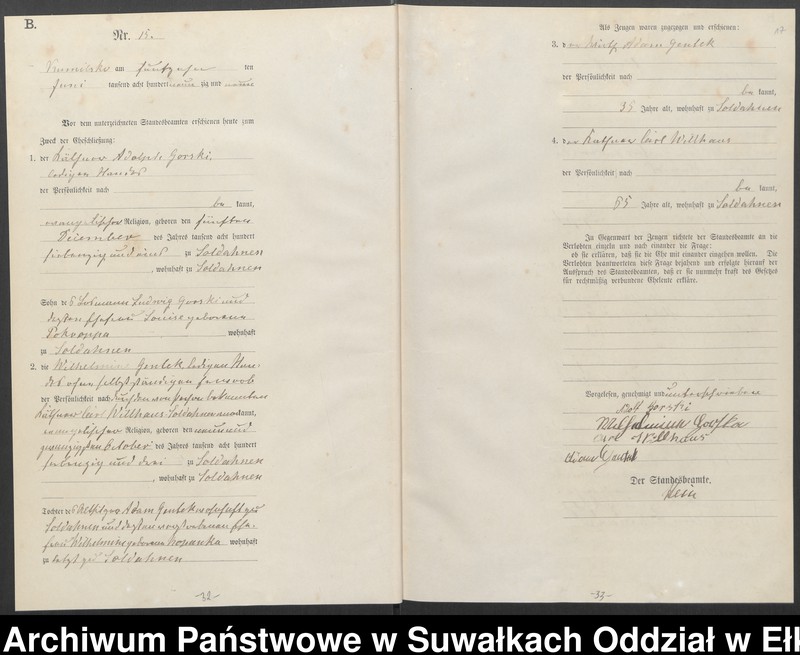 B.
Nr. 15.
am fünfzehn ten
Juni tausend acht hundert neun zig und neun
Vor dem unterzeichneten Standesbeamten erschienen heute zum
Zweck der Eheschließung:
1. der Käthner Adolph Gorski,
ledigen Standes
der Persönlichkeit nach
be kannt,
evangelischer Religion, geboren den fünften
Dezember des Jahres tausend acht hundert
siebenzig und eins zu Soldahnen
, wohnhaft zu Soldahnen
Sohn des Losmann Ludwig Gorski und
dessen Ehefrau Louise geborene
wohnhaft
zu Soldahnen
2. die Wilhelmine Gentek ledigen Stan-
des ohne selbstständigen Erwerb
der Persönlichkeit nach durch den von Person bekannten
Käthner Carl Willhaus Soldahnen kannt,
evangelischer Religion, geboren den neunund
zwanzigsten October des Jahres tausend acht hundert
siebenzig und drei zu Soldahnen
, wohnhaft zu Soldahnen
Tochter des Altsitzer Adam Gentek wohnhaft zu
Soldahnen und dessen verstorbenen Ehe-
frau Wilhelmine geborene wohnhaft
zuletzt zu Soldahnen
-32-
Als Zeugen waren zugezogen und erschienen:
3. der Wirth Adam Gentek
der Persönlichkeit nach
be kannt,
35 Jahre alt, wohnhaft zu Soldahnen
4. der Käthner Carl Willhaus
der Persönlichkeit nach
be kannt,
65 Jahre alt, wohnhaft zu Soldahnen
In Gegenwart der Zeugen richtete der Standesbeamte an die
Verlobten einzeln und nach einander die Frage:
ob sie erklären, daß sie die Ehe mit einander eingehen wollen. Die
Verlobten beantworteten diese Frage bejahend und erfolgte hierauf der
Ausspruch des Standesbeamten, daß er sie nunmehr kraft des Gesetzes
für rechtmäßig verbundene Eheleute erkläre.
Vorgelesen, genehmigt und unterschrieben
Adolf Gorski
Carl Willhaus
Adam Gentek
Der Standesbeamte.
-33-
Archiwum Państwowe w Suwałkach Oddział w Ełk